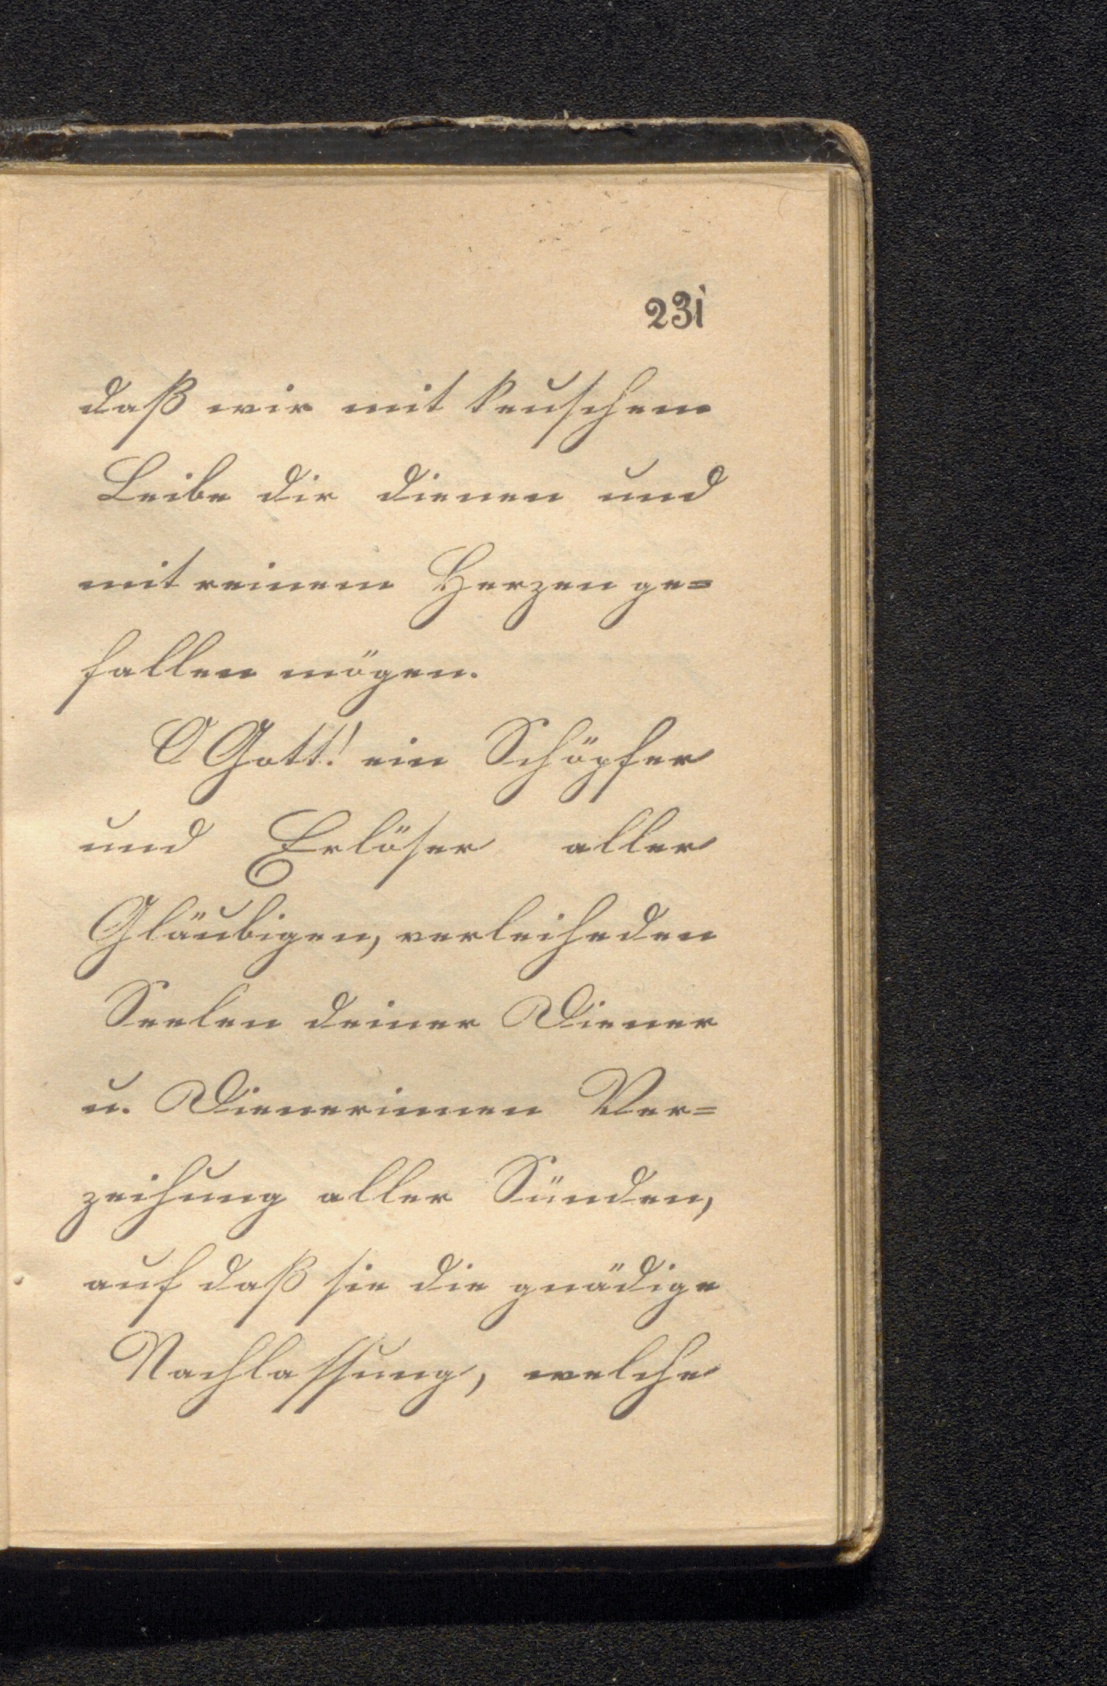 231
daß wir mit keuschem
Leibe dir dienen und
mit reinem Herzen ge=
fallen mögen.
O Gott! ein Schöpfer
und Erlöser aller
Gläubigen, verleihe den
Seelen deiner Diener
u. Dienerinnen Ver=
zeihung aller Sünden,
auf daß sie die gnädige
Nachlassung, welche